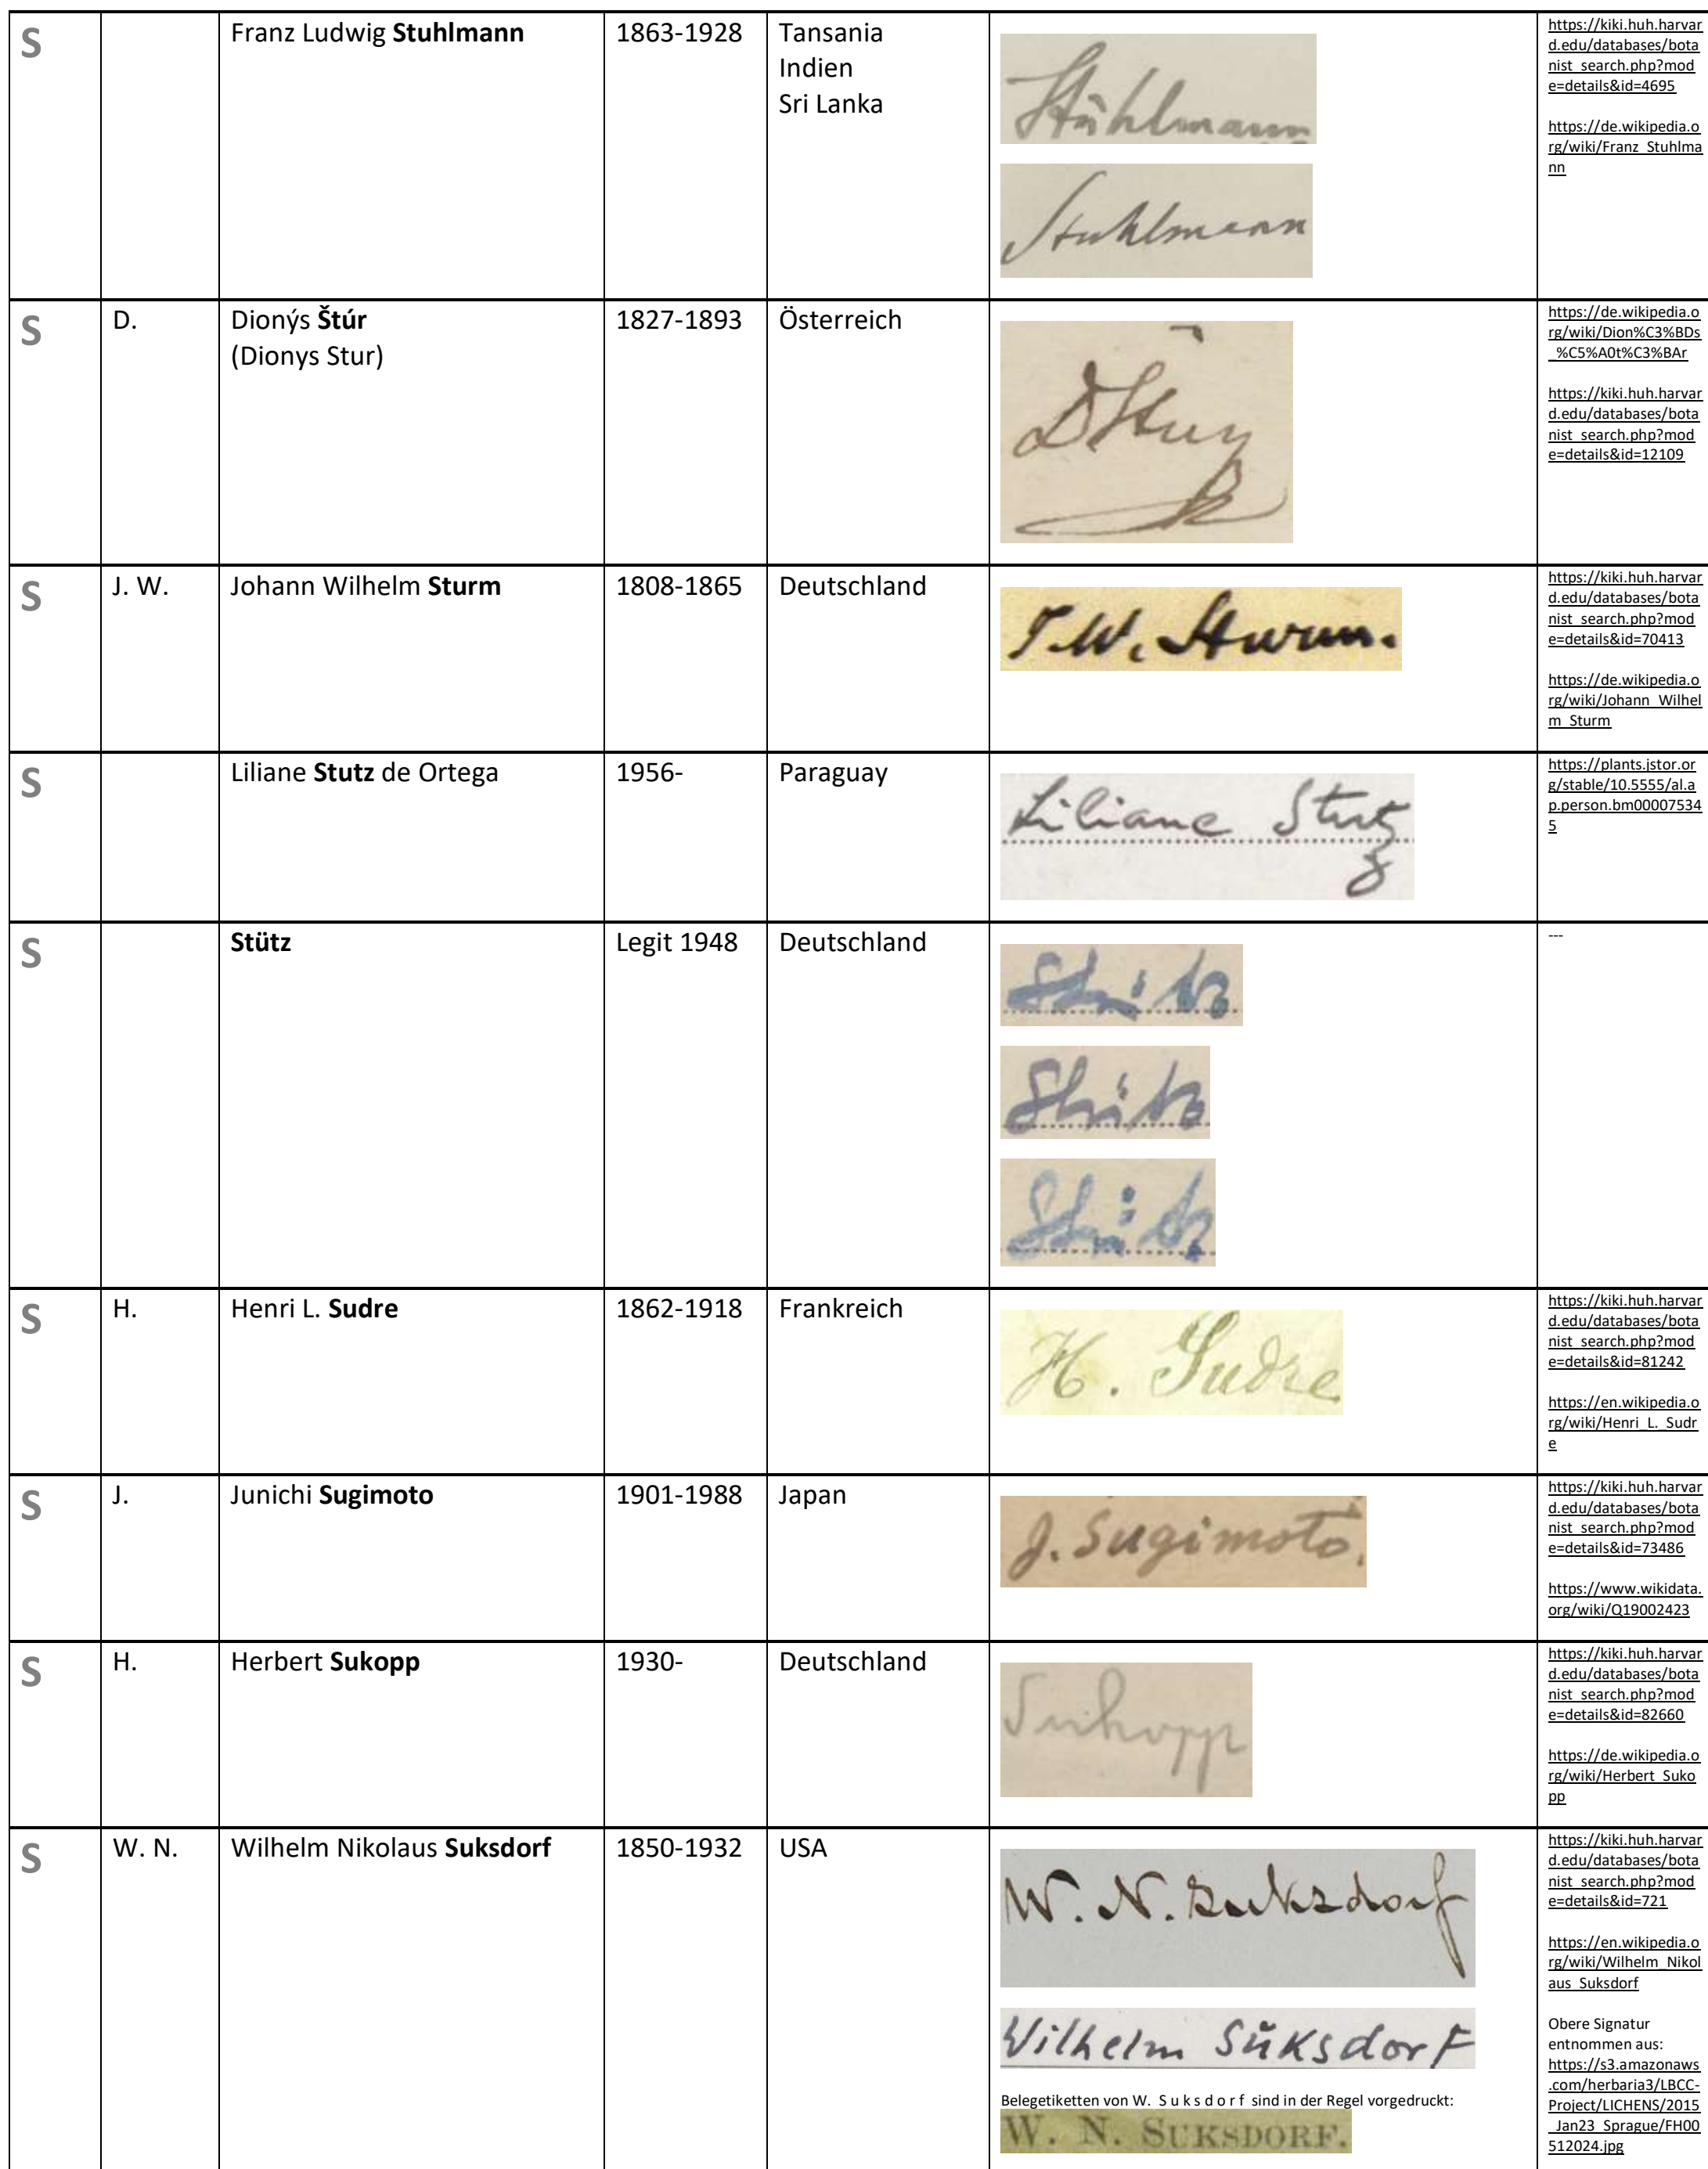 S
Franz Ludwig Stuhlmann
1863-1928
Tansania
Indien
Sri Lanka
Stuhlmann
Stuhlmann
https://kiki.huh.harvar
d.edu/databases/bota
nist_search.php?mod
e=details&id=4695
https://de.wikipedia.o
rg/wiki/Franz_Stuhlma
nn
S
D.
Dionýs Štúr
(Dionys Stur)
1827-1893
Österreich
D Stur
https://de.wikipedia.o
rg/wiki/Dion%C3%BDs
_%C5%A0t%C3%BAr
https://kiki.huh.harvar
d.edu/databases/bota
nist_search.php?mod
e=details&id=12109
S
J. W.
Johann Wilhelm Sturm
1808-1865
Deutschland
J. W. Sturm.
https://kiki.huh.harvar
d.edu/databases/bota
nist_search.php?mod
e=details&id=70413
https://de.wikipedia.o
rg/wiki/Johann_Wilhel
m_Sturm
S
Liliane Stutz de Ortega
1956-
Paraguay
Liliane Stutz
https://plants.jstor.or
g/stable/10.5555/al.a
p.person.bm00007534
5
S
Stütz
Legit 1948
Deutschland
Stütz
Stütz
Stütz
---
S
H.
Henri L. Sudre
1862-1918
Frankreich
H. Sudre
https://kiki.huh.harvar
d.edu/databases/bota
nist_search.php?mod
e=details&id=81242
https://en.wikipedia.o
rg/wiki/Henri_L._Sudr
e
S
J.
Junichi Sugimoto
1901-1988
Japan
J. Sugimoto.
https://kiki.huh.harvar
d.edu/databases/bota
nist_search.php?mod
e=details&id=73486
https://www.wikidata.
org/wiki/Q19002423
S
H.
Herbert Sukopp
1930-
Deutschland
Sukopp
https://kiki.huh.harvar
d.edu/databases/bota
nist_search.php?mod
e=details&id=82660
https://de.wikipedia.o
rg/wiki/Herbert_Suko
pp
S
W. N.
Wilhelm Nikolaus Suksdorf
1850-1932
USA
W. N. Suksdorf
Wilhelm Sŭksdorf
Belegetiketten von W. S u k s d o r f sind in der Regel vorgedruckt:
W. N. SUKSDORF.
https://kiki.huh.harvar
d.edu/databases/bota
nist_search.php?mod
e=details&id=721
https://en.wikipedia.o
rg/wiki/Wilhelm_Nikol
aus_Suksdorf
Obere Signatur
entnommen aus:
https://s3.amazonaws
.com/herbaria3/LBCC-
Project/LICHENS/2015
_Jan23_Sprague/FH00
512024.jpg